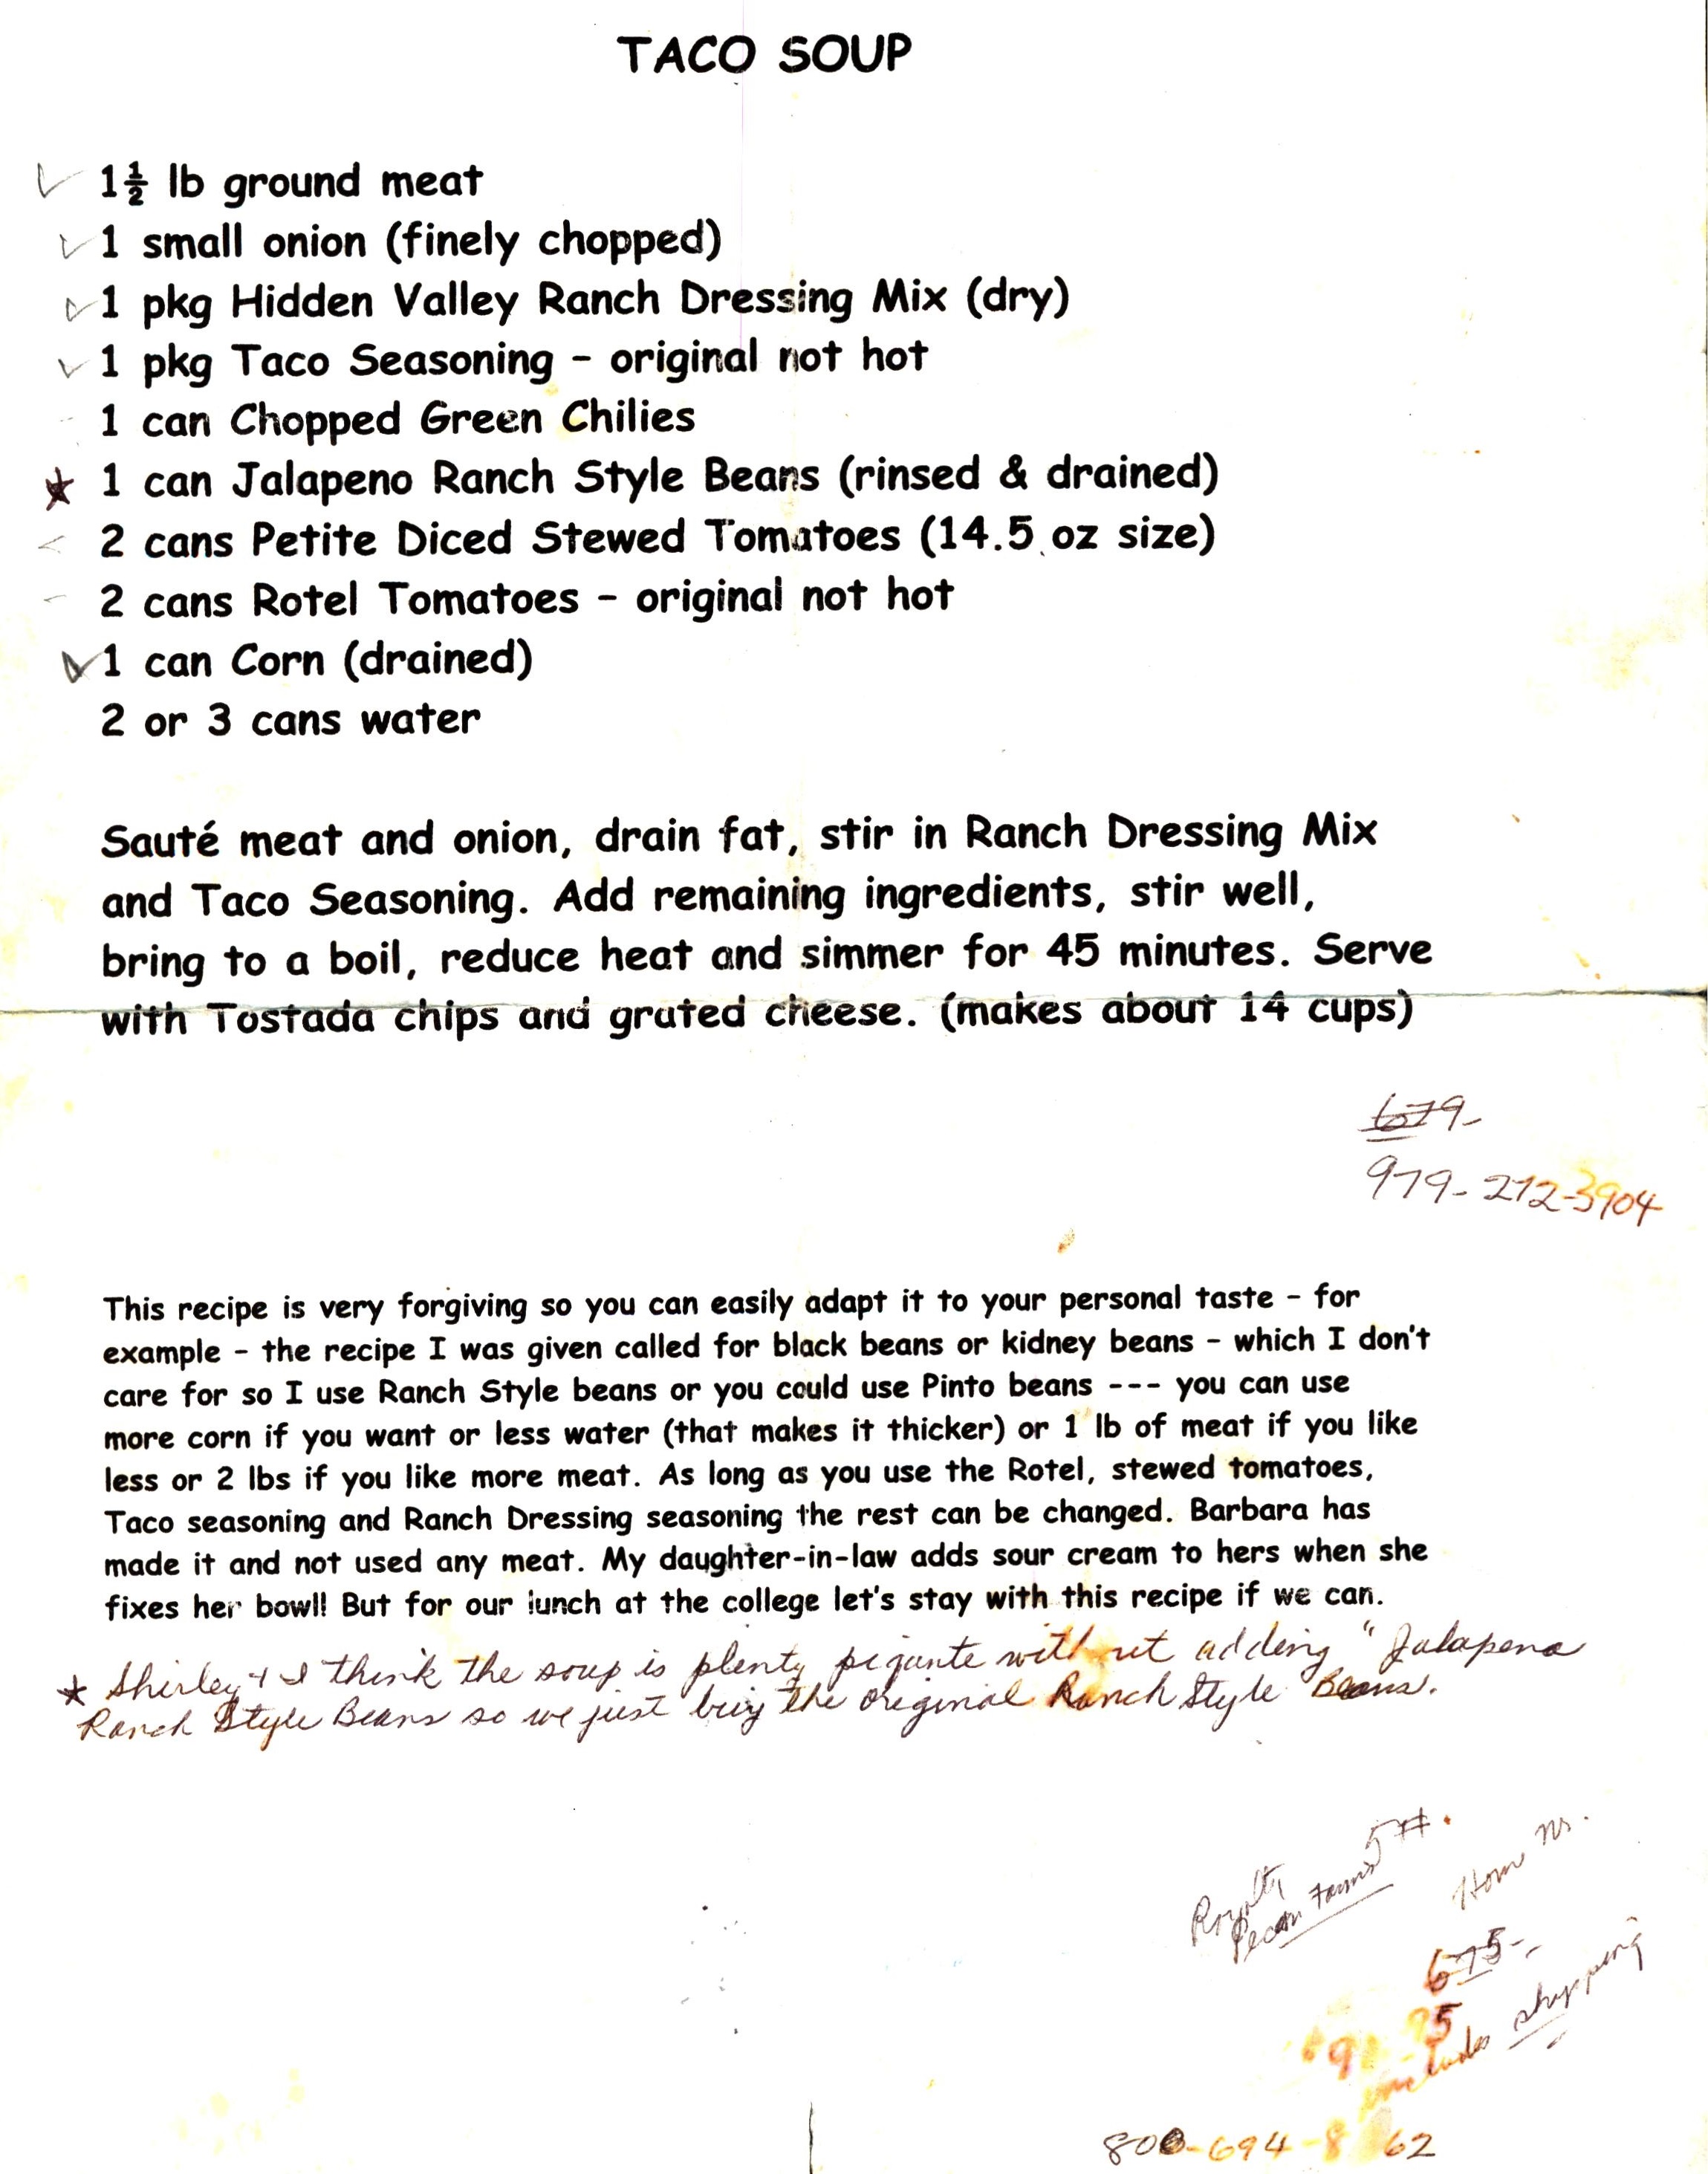 TACO SOUP
1½ lb ground meat
1 small onion (finely chopped)
1 pkg Hidden Valley Ranch Dressing Mix (dry)
1 pkg Taco Seasoning - original not hot
1 can Chopped Green Chilies
★ 1 can Jalapeno Ranch Style Beans (rinsed & drained)
2 cans Petite Diced Stewed Tomatoes (14.5 oz size)
2 cans Rotel Tomatoes - original not hot
1 can Corn (drained)
2 or 3 cans water
Sauté meat and onion, drain fat, stir in Ranch Dressing Mix
and Taco Seasoning. Add remaining ingredients, stir well,
bring to a boil, reduce heat and simmer for 45 minutes. Serve
with Tostada chips and grated cheese. (makes about 14 cups)
679-
979-272-3904
This recipe is very forgiving so you can easily adapt it to your personal taste - for
example - the recipe I was given called for black beans or kidney beans - which I don't
care for so I use Ranch Style beans or you could use Pinto beans --- you can use
more corn if you want or less water (that makes it thicker) or 1 lb of meat if you like
less or 2 lbs if you like more meat. As long as you use the Rotel, stewed tomatoes,
Taco seasoning and Ranch Dressing seasoning the rest can be changed. Barbara has
made it and not used any meat. My daughter-in-law adds sour cream to hers when she
fixes her bowl! But for our lunch at the college let's stay with this recipe if we can.
★ Shirley & I think the soup is plenty piquante without adding "Jalapeno
Ranch Style Beans so we just buy the original Ranch Style Beans.
Royalty
Pecan Farms 5#.
Home
includes shipping
800-694-8 62